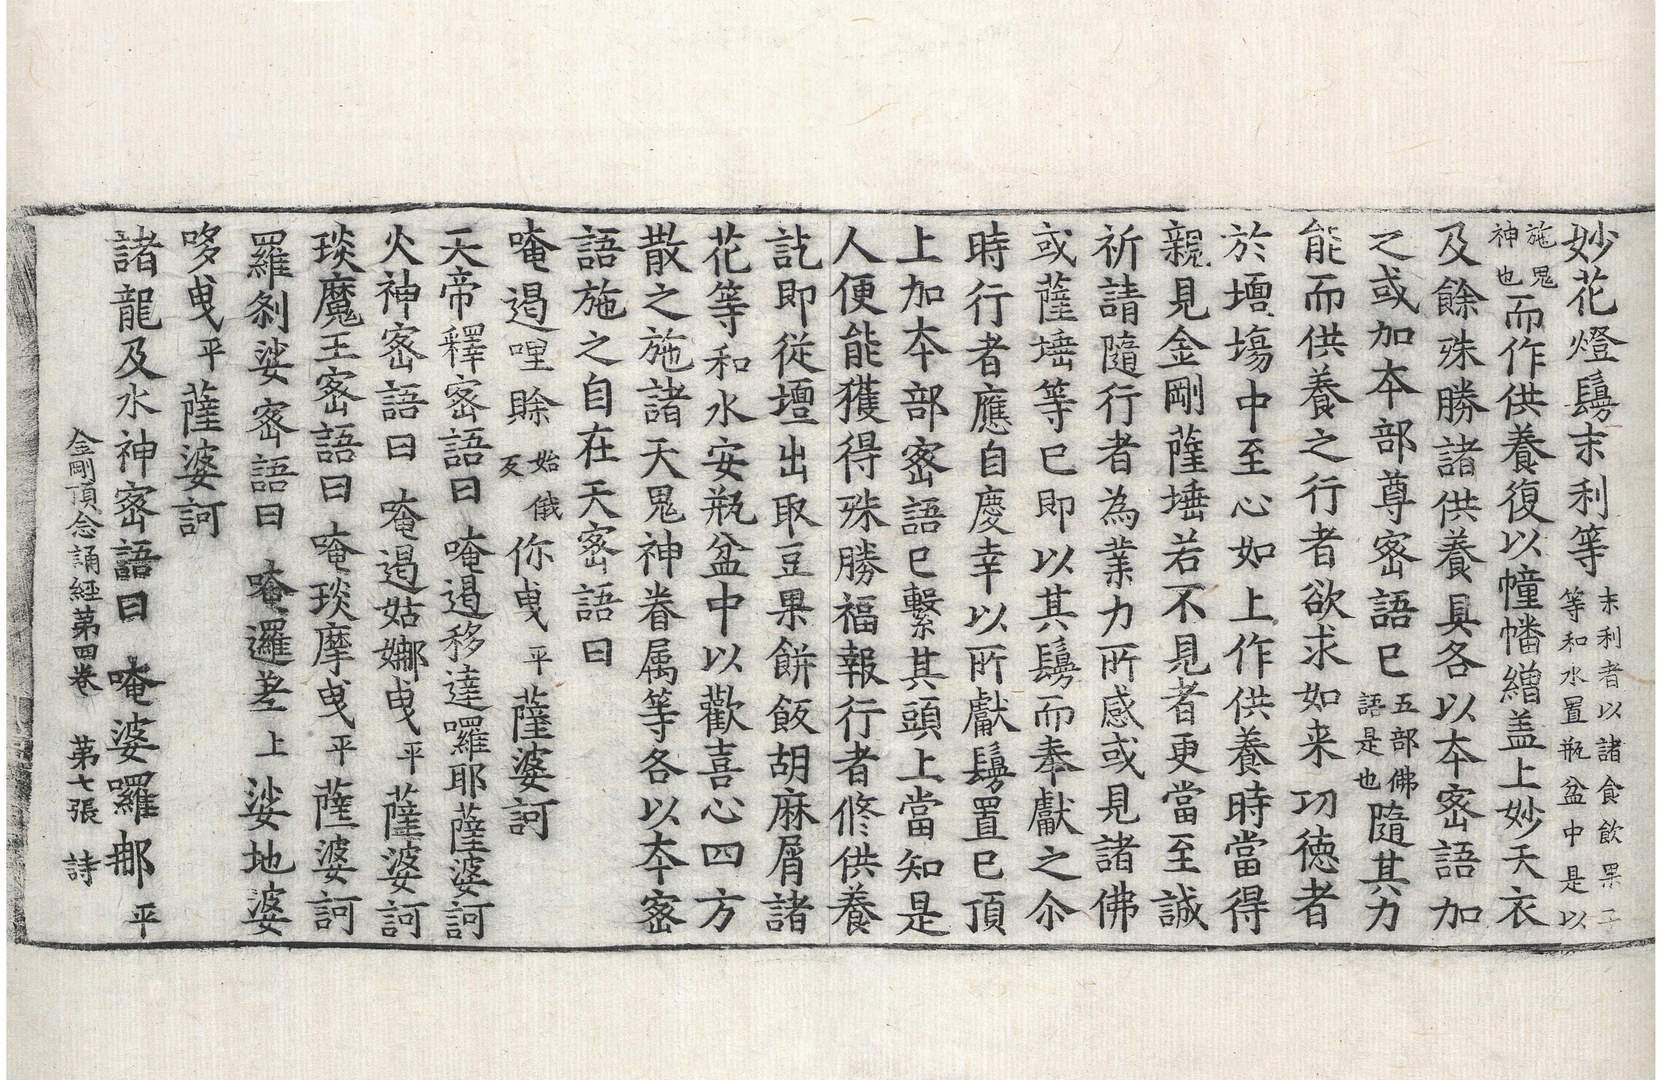 妙花燈鬘末利等末利者以諸食飲果子等和水置瓶盆中是以
施鬼神也而作供養復以幢幡繒盖上妙天衣
及餘殊勝諸供養具各以夲宻語加
之或加夲部尊宻語已五部佛語是也隨其力
能而供養之行者欲求如来功徳者
於壇場中至心如上作供養時當得
親見金剛薩埵若不見者更當至誠
祈請隨行者為業力所感或見諸佛
或薩埵等已即以其鬘而奉獻之尒
時行者應自慶幸以所獻鬘置已頂
上加夲部宻語已繫其頭上當知是
人便能獲得殊勝福報行者修供養
訖即從壇出取豆果餅飯胡麻屑諸
花等和水安瓶盆中以歡喜心四方
散之施諸天鬼神眷属等各以夲宻
語施之自在天宻語曰
唵遏哩賖始儀反你曳平薩婆訶
天帝釋宻語曰　唵遏移達囉耶薩婆訶
火神宻語曰　唵遏姑娜曳平薩婆訶
琰魔王宻語曰　唵琰摩曳平薩婆訶
羅剎娑宻語曰　唵邏差上娑地婆
哆曳平薩婆訶
諸龍及水神宻語曰　唵婆囉那平
金剛頂念誦經第四卷　第七張　詩